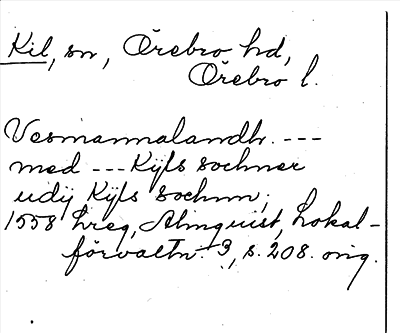 Kil, sn, Örebro hd,
Örebro l.
Vesmannalandh. ---
med --- Kijls sochner
udij Kijls sochnn;
1558 hreg, Almquist, Lokal-
förvaltn. 3, s. 208. orig.